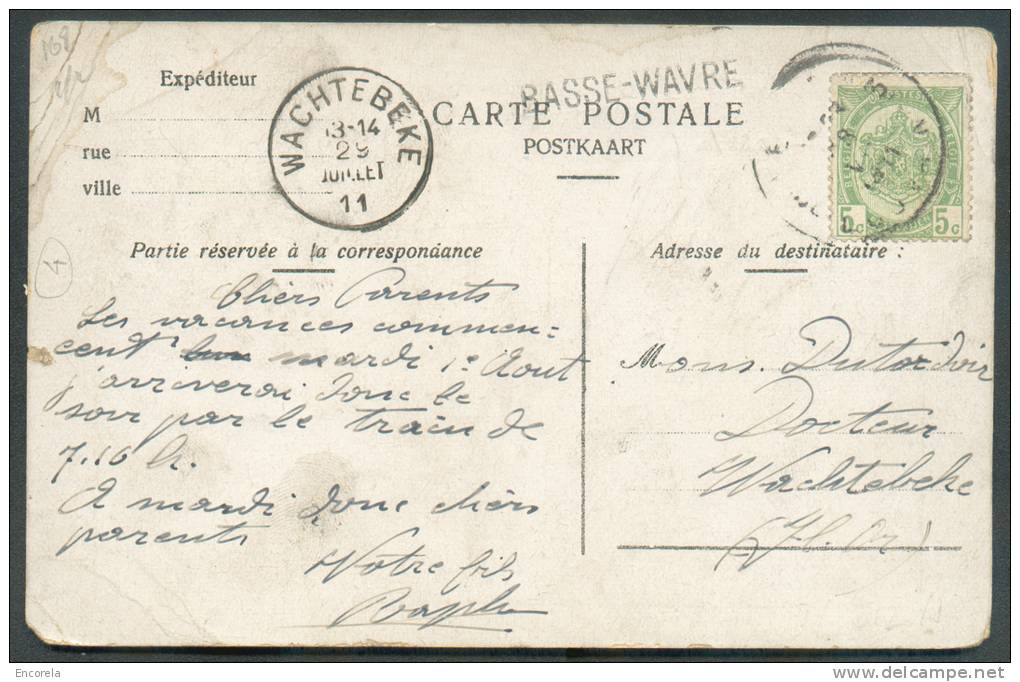 168
Expéditeur
M
rue
ville
WACHTEBEKE
13-14
29
JUILLET
11
BASSE-WAVRE
CARTE POSTALE
POSTKAART
5c 5c
Partie réservée à la correspondance
Adresse du destinataire :
4
Chers Parents
Les vacances commen=
cent mardi 1e Aout
j'arriverai donc le
soir par le train de
7.16 h.
A mardi donc chers
parents
Votre fils
Raph
Mons. Dutordoir
Docteur
Wachtebeke
(Fl. Or.)
Encorela
delcampe.net